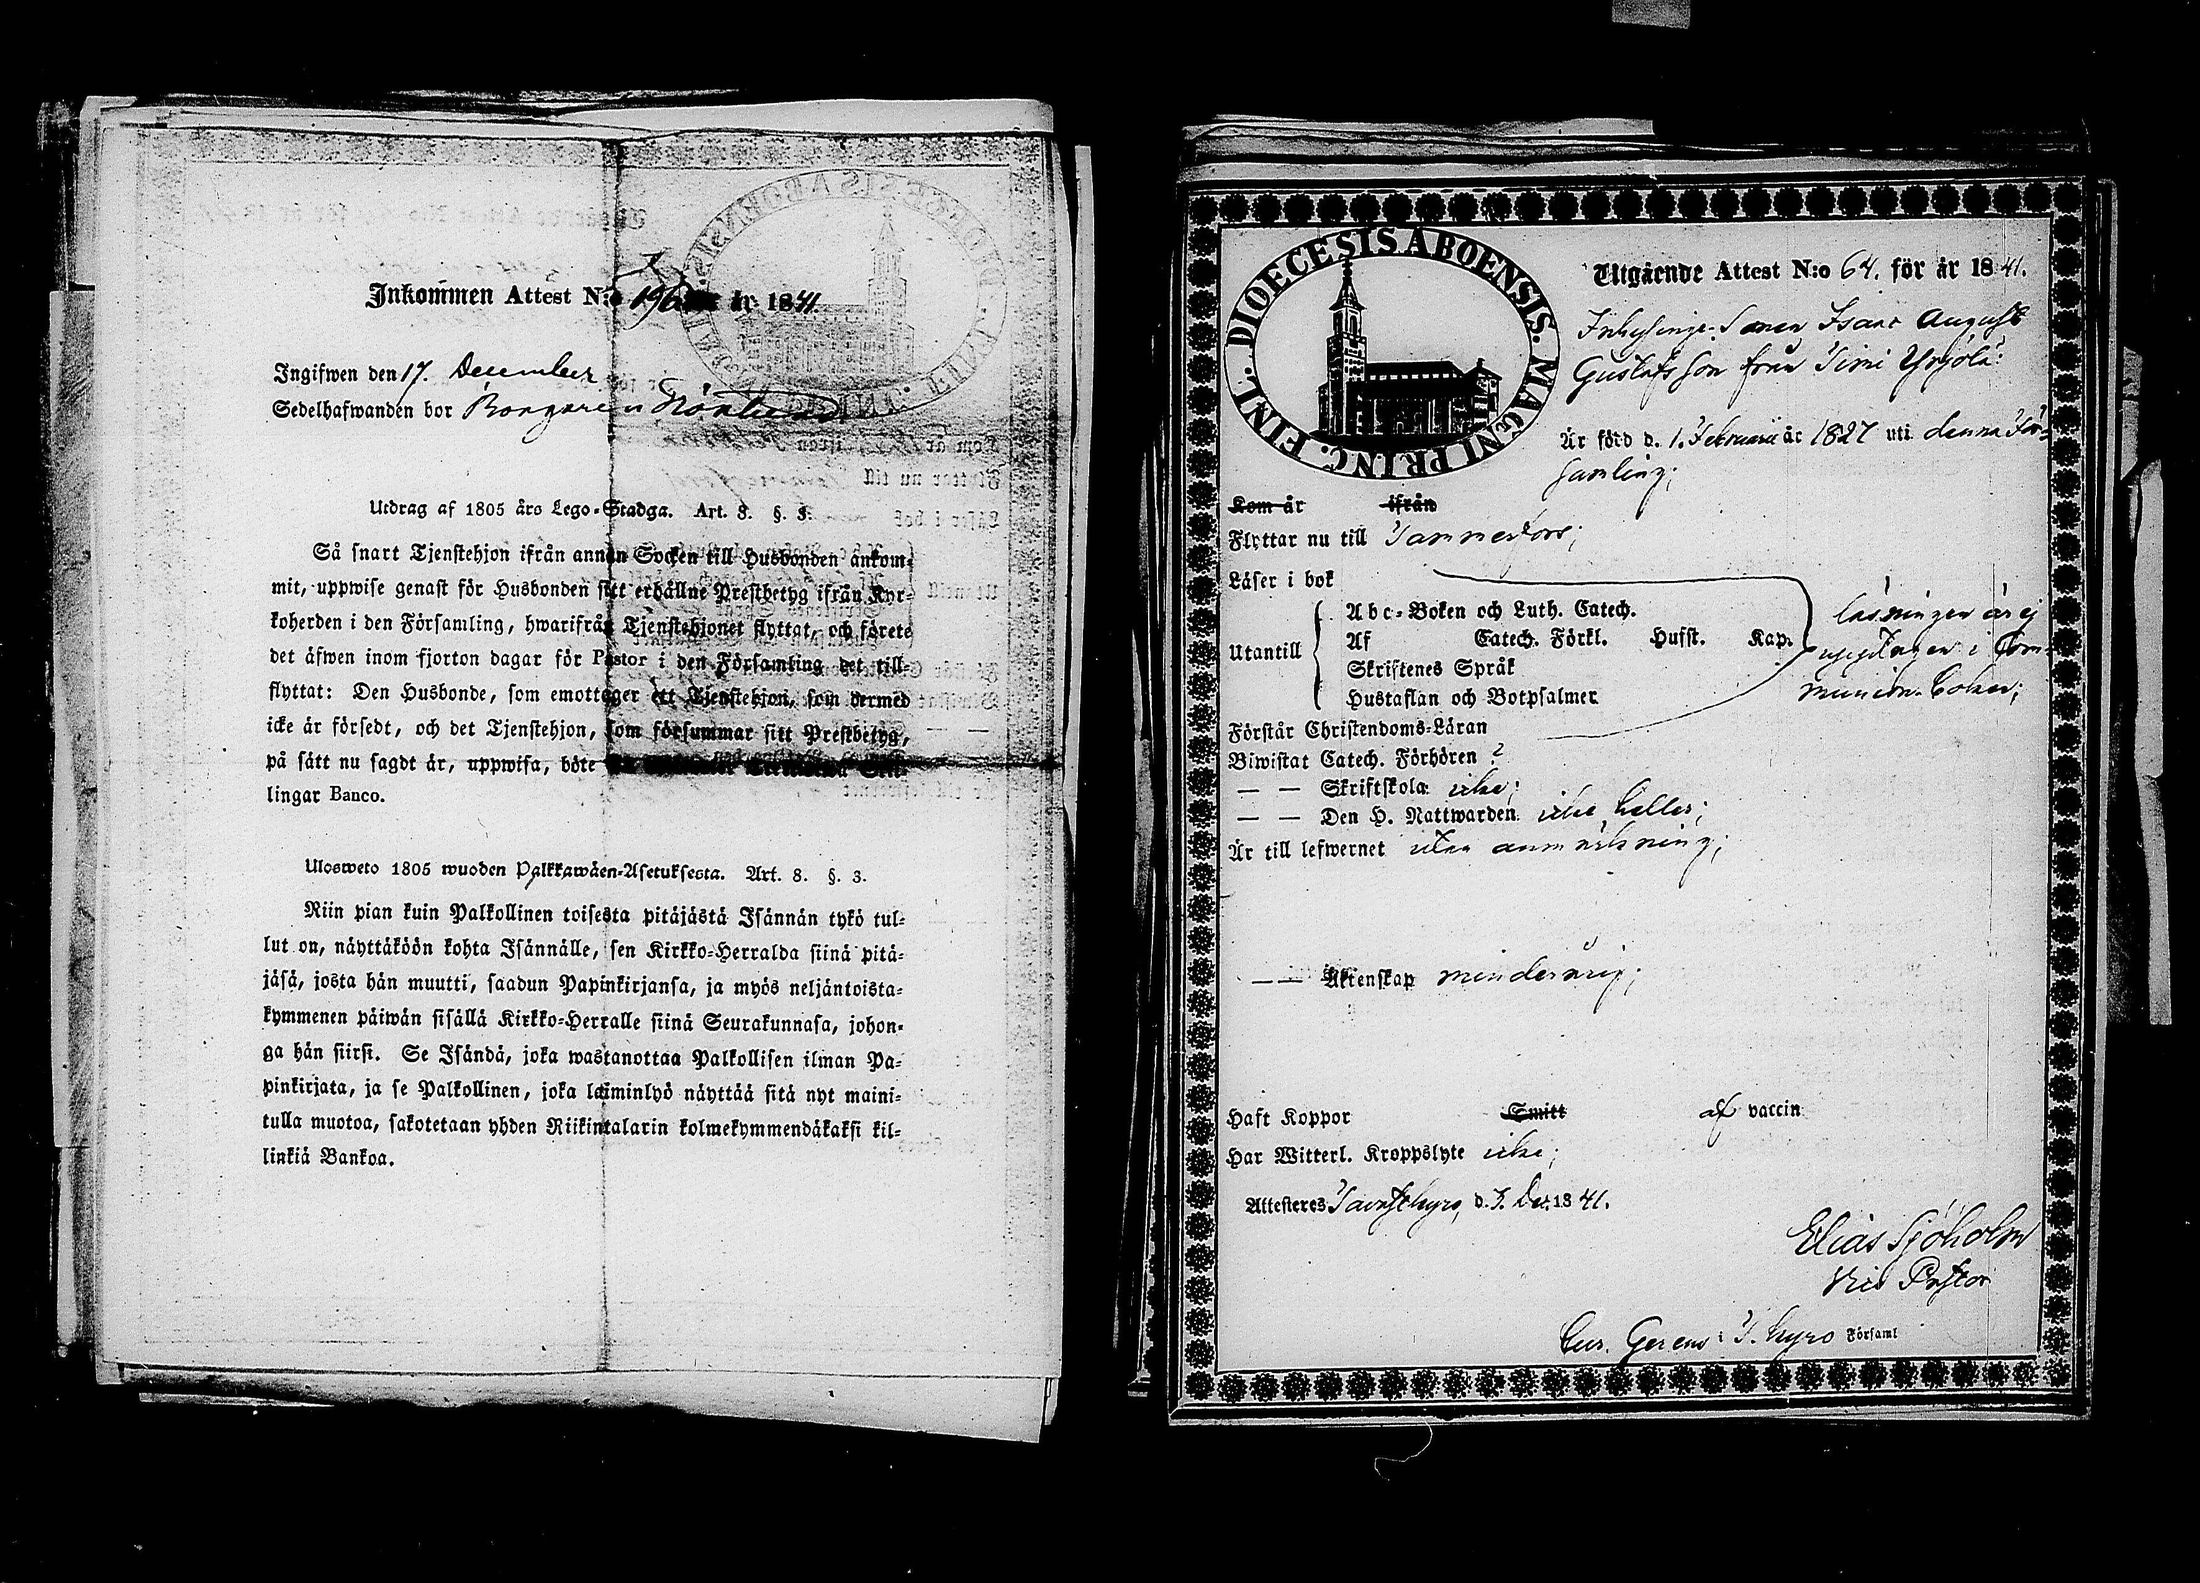 Inkommen Attest N:o 196 för år 1841.
Ingifwen den 17. December
Sedelhafwanden bor
Utdrag af 1805 års Lego-Stadga. Art. 8. §. 3.
Så snart Tjenstehjon ifrån annan Socken till Husbonden ankom-
mit, uppwise genast för Husbonden sitt erhållne Prestbetyg ifrån Kyr-
koherden i den Församling, hwarifrån Tjenstehjonet flyttat, och förete
det äfwen inom fjorton dagar för Pastor i den Församling det till-
flyttat: Den Husbonde, som emottager ett Tjenstehjon, som dermed
icke är försedt, och det Tjenstehjon, som försummar sitt Prestbetyg,
på sätt nu sagdt är, uppwisa, böte
lingar Banco.
Ulosweto 1805 wuoden Palkkawäen-Asetuksesta. Art. 8. §. 3.
Niin pian kuin Palkollinen toisesta pitäjästä Isännän tykö tul-
lut on, näyttäköön kohta Isännälle, sen Kirkko-Herralda siinä pitä-
jäsä, josta hän muutti, saadun Papinkirjansa, ja myös neljäntoista-
kymmenen päiwän sisällä Kirkko-Herralle siinä Seurakunnasa, johon-
ga hän siirsi. Se Isändä, joka wastanottaa Palkollisen ilman Pa-
pinkirjata, ja se Palkollinen, joka laiminlyö näyttää sitä nyt maini-
tulla muotoa, sakotetaan yhden Riikintalarin kolmekymmendäkaksi kil-
linkiä Bankoa.
DIOECESIS ABOENSIS. MAGNI PRINC. FINL.
Utgående Attest N:o 64. för år 1841.
Inhysinge Sonen Isaac August
Gustafsson från Timi Yrjölä:
Är född d. 1. Februarii år 1827 uti denna För-
samling;
Kom år ifrån
Flyttar nu till Tammerfors;
Läser i bok
Utantill
Abc-Boken och Luth. Catech.
Af Catech. Förkl. Husst. Kap.
Skriftenes Språk
Hustaflan och Botpsalmer
läsningen är ej
upptagen i Com-
munion-boken;
Förstår Christendoms-Läran
Biwistat Catech. Förhören ?
— — Skriftskola icke;
— — Den H. Nattwarden icke heller;
Är till lefwernet utan anmärkning;
— — Äktenskap minderårig;
Haft Koppor Smitt af vaccin
Har Witterl. Kroppslyte icke;
Attesteres Tavastkyro, d. 3. Dec. 1841.
Elias Sjöholm
Vice Pastor
Cur. Gerens i T. kyro Församl